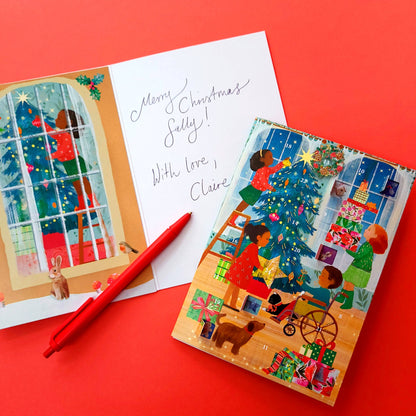 Merry Christmas
Gilly!
With love,
Claire